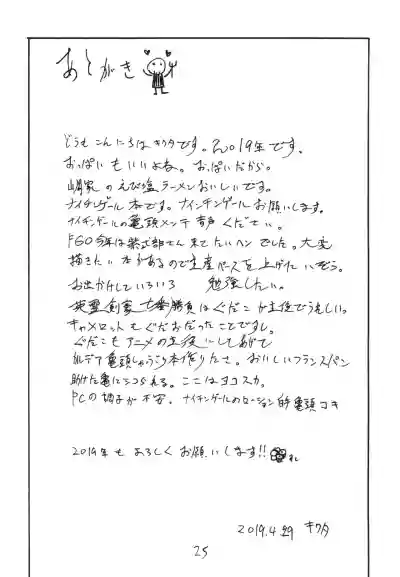 あとがき
どうもこんにちはキクタです。2019年です。
おっぱいもいいよね。おっぱいだから。
家のえび塩ラーメンおいしいです。
ナイチンゲール本です。ナイチンゲールお願いします。
ナイチンゲールの亀頭メンテ音声ください。
FGO今年は紫式部さん来てたいへんでした。大変
描きたい本があるので生産ペースを上げたいぞう。
お出かけしていろいろ 勉強したい。
英霊剣豪七番勝負はぐだこが主役でうれしい。
キャメロットもぐだおだったことですし。
ぐだこもアニメの主役にしてあげて
カルデア亀頭しゃぶり本作りたさ。おいしいフランスパン
助けた亀にシコられる。ここはヨコスカ。
PCの調子が不安。ナイチンゲールのローション的亀頭コキ
2019年もよろしくお願いします!!
2019.4.29 キクタ
25